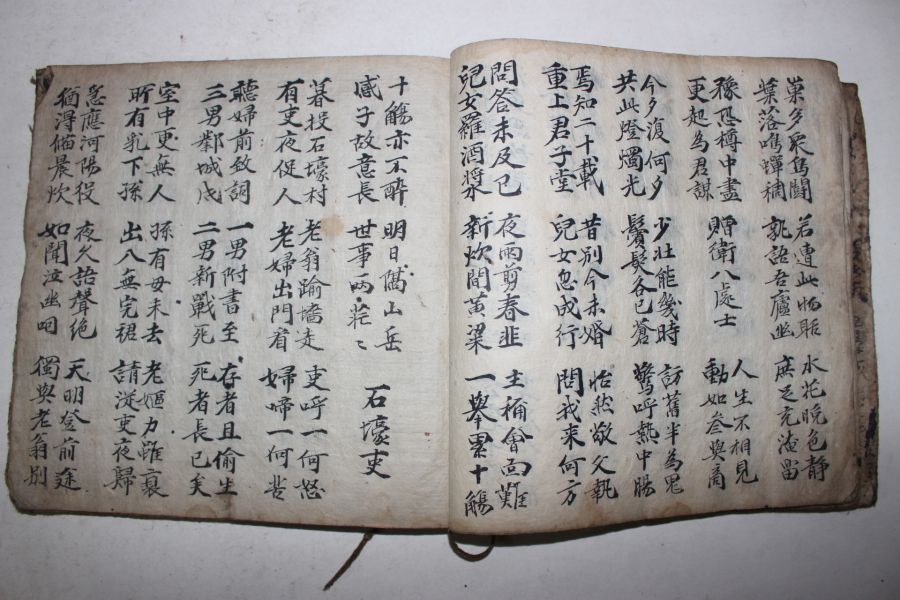 巢多衆鳥鬪
葉落鳴蟬稠
若遭此物聒
孰語吾廬幽
水花晚色靜
庶足充淹留
豫恐樽中盡
更起為君謀
贈衛八處士
人生不相見
動如參與商
今夕復何夕
共此燈燭光
少壯能幾時
鬢髮各已蒼
訪舊半為鬼
驚呼熱中腸
焉知二十載
重上君子堂
昔別今未婚
兒女忽成行
怡然敬父執
問我來何方
問答未及已
兒女羅酒漿
夜雨剪春韭
新炊間黃粱
主稱會面難
一舉累十觴
十觴亦不醉
感子故意長
明日隔山岳
世事兩茫〻
石壕吏
暮投石壕村
有吏夜促人
老翁踰墻走
老婦出門看
吏呼一何怒
婦啼一何苦
聽婦前致詞
三男鄴城戍
一男附書至
二男新戰死
存者且偷生
死者長已矣
室中更無人
所有乳下孫
孫有母未去
出入無完裙
老嫗力雖衰
請從吏夜歸
急應河陽役
猶得備晨炊
夜久語聲絶
如聞泣幽咽
天明登前途
獨與老翁別